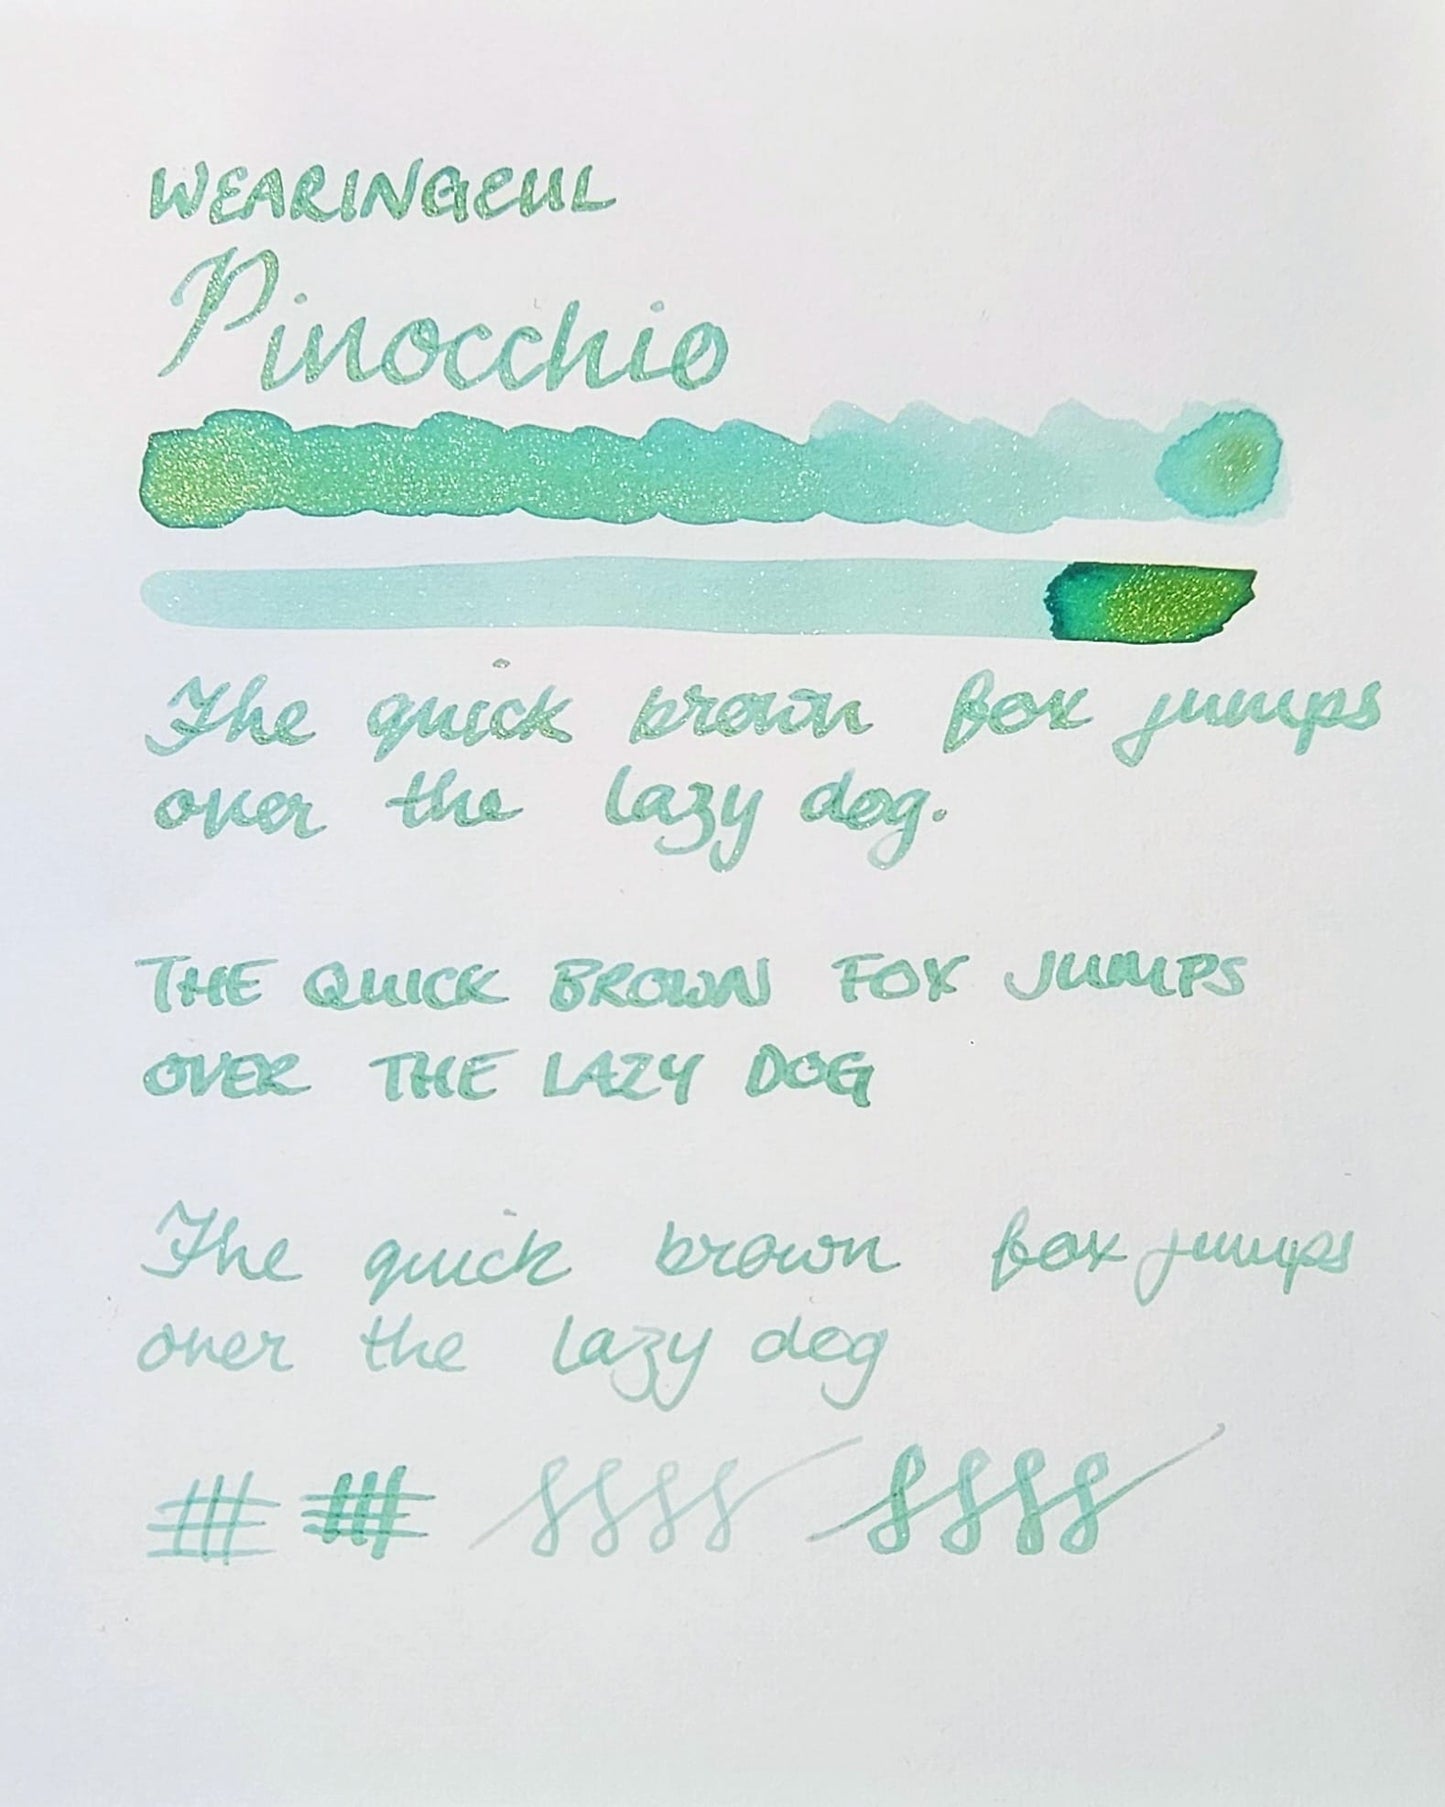 WEARINGEUL
Pinocchio
The quick brown fox jumps
over the lazy dog.
THE QUICK BROWN FOX JUMPS
OVER THE LAZY DOG
The quick brown fox jumps
over the lazy dog